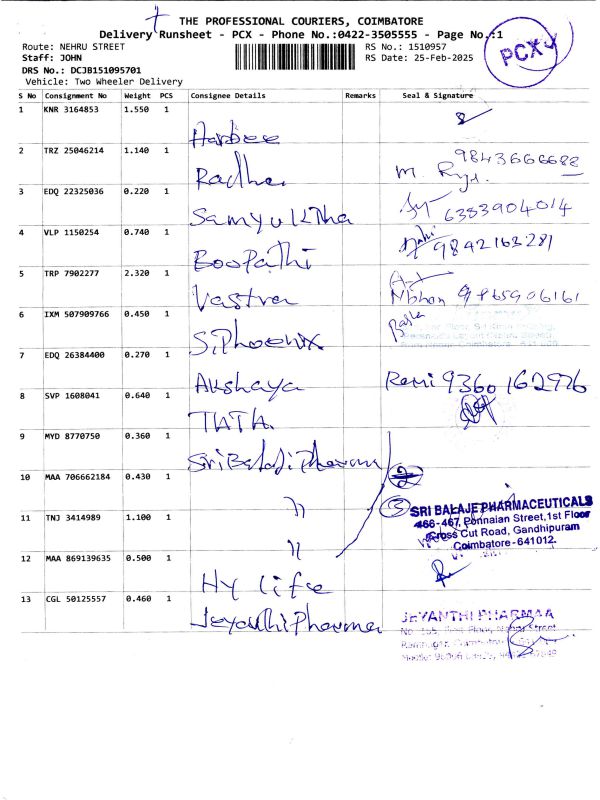 THE PROFESSIONAL COURIERS, COIMBATORE
Delivery Runsheet - PCX - Phone No.:0422-3505555 - Page No.:1
Route: NEHRU STREET
RS No.: 1510957
Staff: JOHN
RS Date: 25-Feb-2025
DRS No.: DCJB151095701
Vehicle: Two Wheeler Delivery
PCX
S No Consignment No Weight PCS Consignee Details Remarks Seal & Signature
1 KNR 3164853 1.550 1
2 TRZ 25046214 1.140 1 Radha 9843666688
3 EDQ 22325036 0.220 1 Samyuktha 6383904014
4 VLP 1150254 0.740 1 Boopathi 9842163281
5 TRP 7902277 2.320 1 Vastra 9865906161
6 IXM 507909766 0.450 1 S. Phoenix
7 EDQ 26384400 0.270 1 Akshaya Remi 9360162976
8 SVP 1608041 0.640 1 TATA
9 MYD 8770750 0.360 1 Sri Balaji Pharma
10 MAA 706662184 0.430 1 "
11 TNJ 3414989 1.100 1 "
3
SRI BALAJE PHARMACEUTICALS
466-467, Ponnaian Street, 1st Floor
Cross Cut Road, Gandhipuram
Coimbatore - 641012.
12 MAA 869139635 0.500 1 Hy life
13 CGL 50125557 0.460 1 Jeyanthi Pharma
JEYANTHI PHARMAA